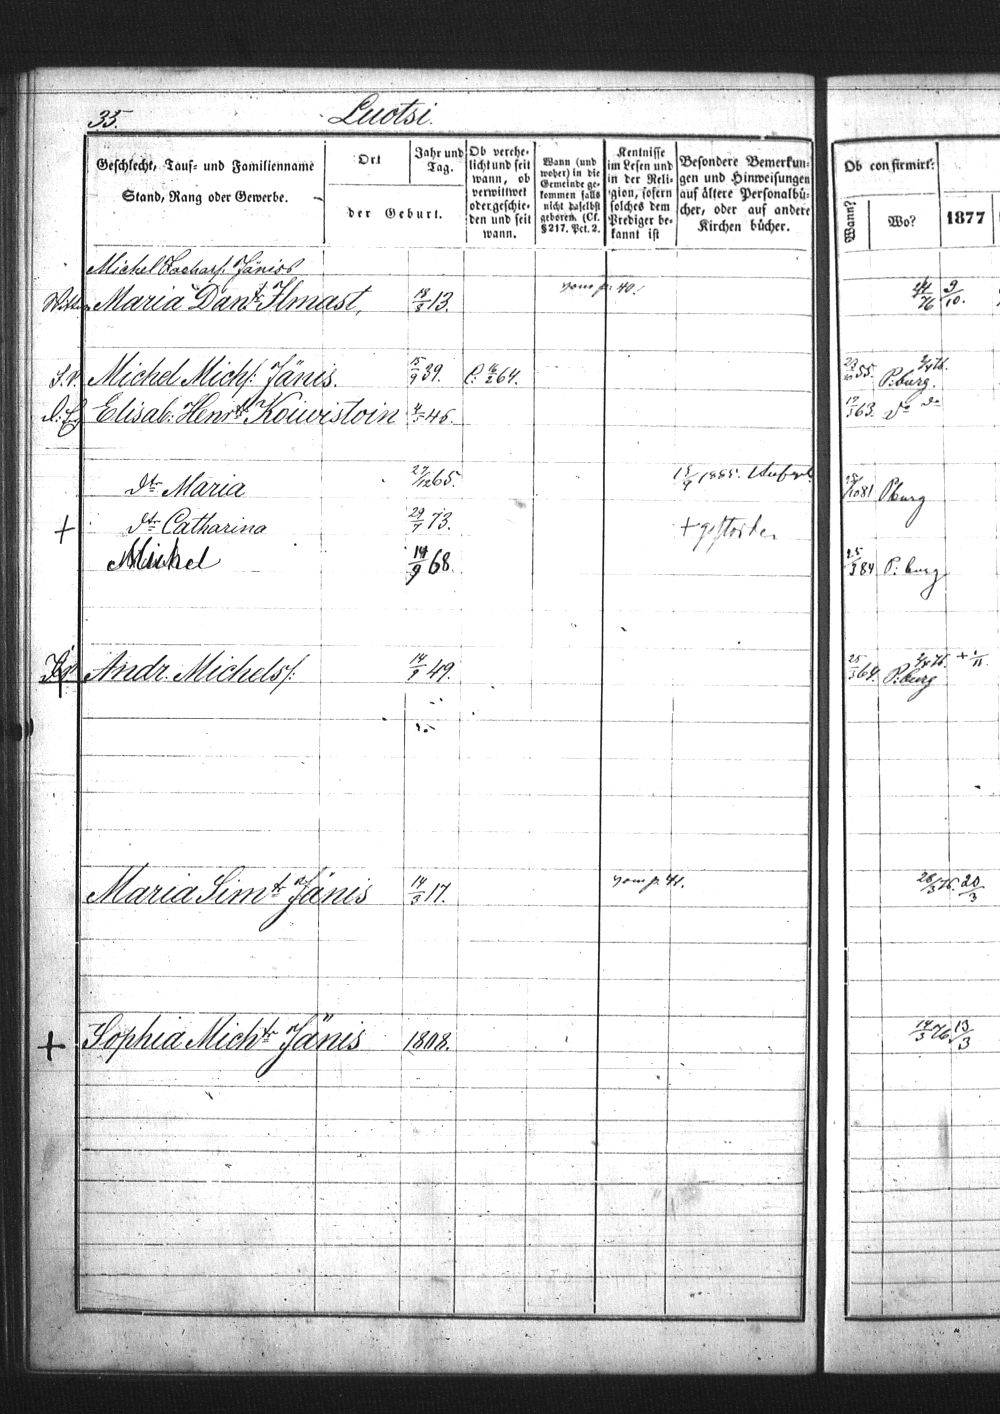 35.
Luotsi.
Geschlecht, Tauf- und Familienname
Stand, Rang oder Gewerbe.
Ort
der Geburt.
Jahr und Tag.
Ob verehe-
licht und seit
wann, ob
verwittwet
oder geschie-
den und seit
wann.
Wann (und
woher) in die
Gemeinde ge-
kommen falls
nicht daselbst
geboren. (Cf.
§ 217. Pct. 2.
Kentnisse
im Lesen und
in der Reli-
gion, sofern
solches dem
Prediger be-
kannt ist
Besondere Bemerkun-
gen und Hinweisungen
auf ältere Personalbü-
cher, oder auf andere
Kirchen bücher.
Ob confirmirt:
Wann?
Wo?
1877
Michel Jänis
Maria Dan tr Ilmast, 18/8 13. vom p: 40. 76 9/10.
S.v. Michel Mich/: Jänis. 15/9 39. C: 16/2 64. 55. P:burg. 76.
Elisab: Henr tr Kouvistoin 4/5 45. 63. do do
dtr Maria 27/12 65. 15/9 1885. 81 Pburg
+ dtr Catharina 29/7 73. + gestorben
Michel 14/9 68. 25/3 84 P: burg
Andr. Michels/: 14/9 49. 25/3 64. P:burg 76. +
Maria Sim tr Jänis 14/3 17. vom p. 41. 26/3 76. 20/3
+ Sophia Mich tr Jänis 1808. 14/3 76. 13/3